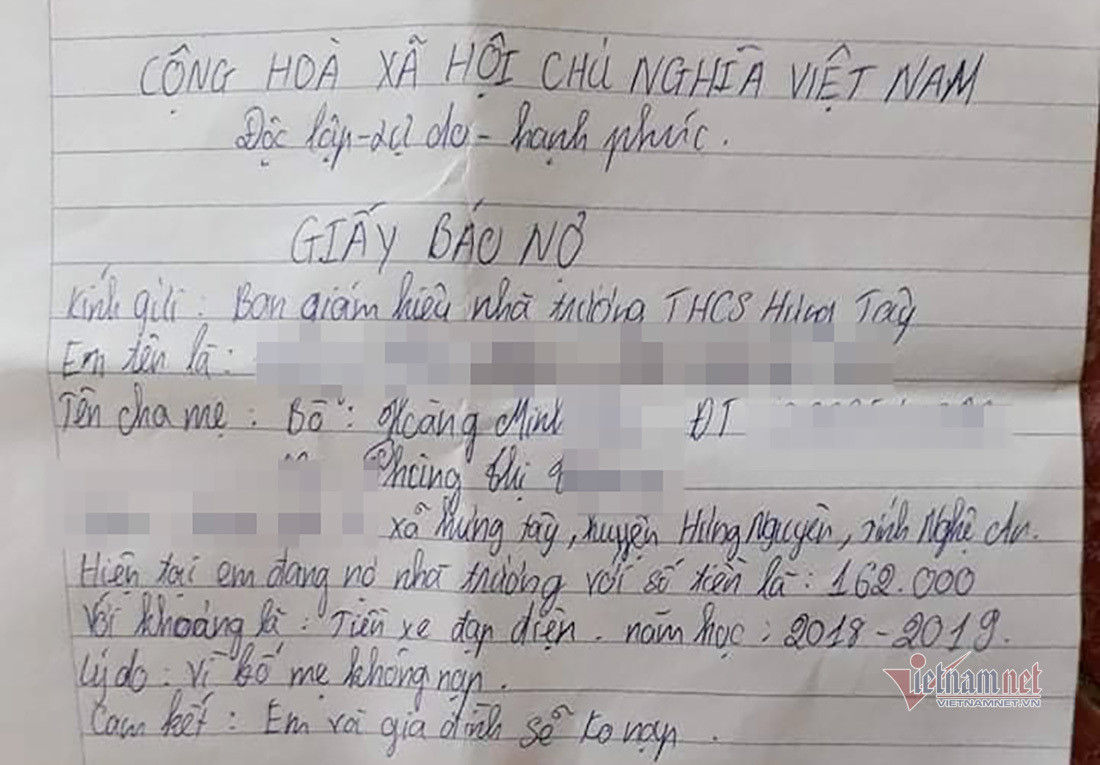 CỘNG HOÀ XÃ HỘI CHỦ NGHĨA VIỆT NAM
Độc lập - tự do - hạnh phúc.
GIẤY BÁO NỢ
Kính gửi : Ban giám hiệu nhà trường THCS Hưng Tây
Em tên là :
Tên cha mẹ : Bố : Hoàng Minh ĐT
Phùng thị
xã hưng tây, huyện Hưng Nguyên, tỉnh Nghệ An.
Hiện tại em đang nợ nhà trường với số tiền là : 162.000
Với khoảng là : Tiền xe đạp điện . năm học : 2018 - 2019.
Lý do : Vì bố mẹ không nạp .
Cam kết : Em và gia đình sẽ ko nạp .
Vietnamnet
VIETNAMNET.VN